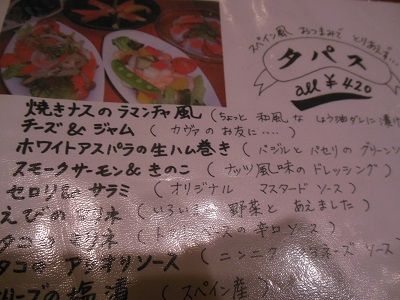 スペイン風 おつまみで とりあえず…
タパス
all ¥420
焼きナスのラマンチャ風 (ちょっと 和風な しょう油ダレに漬け
チーズ&ジャム (カヴァのお友に‥‥)
ホワイトアスパラの生ハム巻き (バジルとパセリのグリーンソ
スモークサーモン&きのこ (ナッツ風味のドレッシング)
セロリ&サラミ (オリジナル マスタードソース)
えびの マリネ (いろいろ 野菜と あえました)
タコの マリネ ( の辛口ソース)
タコの アリオリソース (ニンニク マヨネーズ ソース)
リーブの塩漬 (スペイン産)